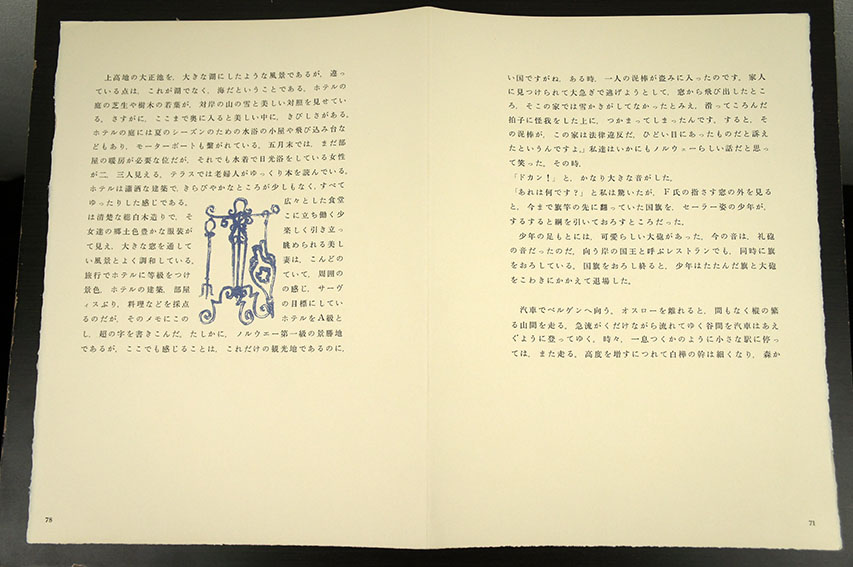 上高地の大正池を、大きな湖にしたような風景であるが、違っ
ている点は、これが湖でなく、海だということである。ホテルの
庭の芝生や樹木の若葉が、対岸の山の雪と美しい対照を見せてい
る。さすがに、ここまで奥に入ると美しい中に、きびしさがある。
ホテルの庭には夏のシーズンのための水浴の小屋や飛び込み台な
どもあり、モーターボートも繋がれている。五月末では、まだ部
屋の暖房が必要な位だが、それでも水着で日光浴をしている女性
が二、三人見える。テラスでは老婦人がゆっくり本を読んでいる。
ホテルは瀟洒な建築で、きらびやかなところが少しもなく、すべて
ゆったりした感じである。 広々とした食堂
は清楚な総白木造りで、そ こに立ち働く少
女達の郷土色豊かな服装が 楽しく引き立っ
て見え、大きな窓を通して 眺められる美し
い風景とよく調和している。 妻は、こんどの
旅行でホテルに等級をつけ ていて、周囲の
景色、ホテルの建築、部屋 の感じ、サーヴ
ィスぶり、料理などを採点 の目標にしてい
るのだが、そのメモにこの ホテルをA級と
し、超の字を書きこんだ。たしかに、ノルウェー第一級の景勝地
であるが、ここでも感じることは、これだけの観光地であるのに、
78
い国ですがね、ある時、一人の泥棒が盗みに入ったのです。家人
に見つけられて大急ぎで逃げようとして、窓から飛び出したとこ
ろ、そこの家では雪かきがしてなかったとみえ、滑ってころんだ
拍子に怪我をした上に、つかまってしまったんです。すると、そ
の泥棒が、この家は法律違反だ、ひどい目にあったものだと訴え
たというんですよ。」私達はいかにもノルウェーらしい話だと思っ
て笑った。その時、
「ドカン！」と、かなり大きな音がした。
「あれは何です？」と私は驚いたが、F氏の指さす窓の外を見る
と、今まで旗竿の先に翻っていた国旗を、セーラー姿の少年が、
するすると綱を引いておろすところだった。
少年の足もとには、可愛らしい大砲があった。今の音は、礼砲
の音だったのだ。向う岸の国王と呼ぶレストランでも、同時に旗
をおろしている。国旗をおろし終ると、少年はたたんだ旗と大砲
をこわきにかかえて退場した。
汽車でベルゲンへ向う。オスローを離れると、間もなく樅の繁
る山間を走る。急流がくだけながら流れてゆく谷間を汽車はあえ
ぐように登ってゆく。時々、一息つくかのように小さな駅に停っ
ては、また走る。高度を増すにつれて白樺の幹は細くなり、森か
71